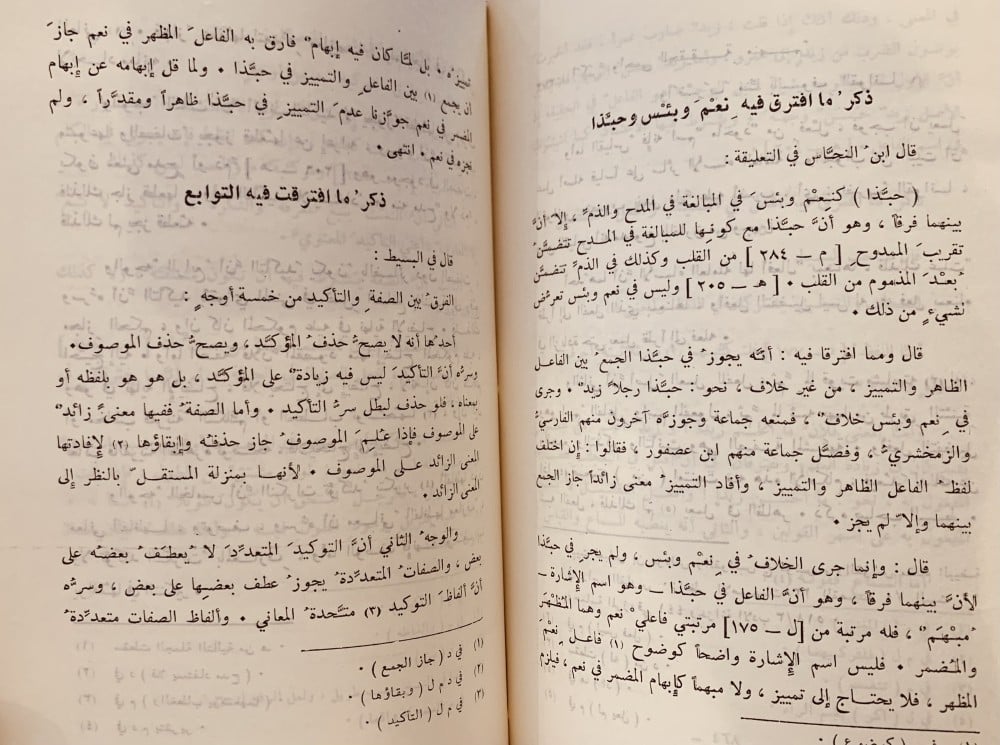 ذكرُ ما افترق فيه نِعْمَ وبئسْ وحبَّذا
قال ابنُ النحَّاس في التعليقة :
( حبَّذا ) كنِعْمْ وبئسَ في المبالغة في المدح والذمِّ ، إلاّ أنَّ
بينهما فرقاً ، وهو أنَّ حبَّذا مع كونِها للمبالغة في المدح تتضمَّنُ
تقريبَ الممدوحِ [ م ــ ٢٨٤ ] من القلب وكذلك في الذمِّ تتضمَّن
بُعْدَ المذموم من القلب ٠ [ هـ ــ ٢٠٥ ] وليس في نعم وبئس تعرُّض
لشيءٍ من ذلك ٠
قال ومما افترقا فيه : أنَّه يجوزُ في حبَّذا الجمعُ بين الفاعل
الظاهر والتمييز ، من غير خلاف ، نحو : حبَّذا رجلاً زيدٌ ٠ وجرى
في نِعم وبئس خلافٌ ، فمنعه جماعة وجوزَّه آخرون منهم الفارسيُّ
والزمخشريُّ ، وفصَّل جماعة منهم ابن عصفور ، فقالوا : إن اختلف
لفظُ الفاعل الظاهر والتمييز ، وأفاد التمييزُ معنى زائداً جاز الجمع
بينهما وإلاّ لم يجز ٠
قال : وإنما جرى الخلافُ في نعْم وبئس ، ولم يجرِ في حبَّذا
لأنَّ بينهما فرقاً ، وهو أنَّ الفاعل في حبَّذا ــ وهو اسم الإشارة ــ
مُبْهَم ، فله مرتبة من [ل ــ ١٧٥] مرتبتي فاعلي نعم وهما المُظهَر
والمُضمر ٠ فليس اسم الإشارة واضحاً كوضوح (١) فاعل نِعْمَ
المظهر ، فلا يحتاج إلى تمييز ، ولا مبهماً كإبهام المضمر في نعم ، فيلزم
تمييزه ٠ بل لمَّا كان فيه إبهامٌ فارق به الفاعلَ المظهر في نعم جازَ
أن يجمع (١) بين الفاعلِ والتمييز في حبَّذا ٠ ولما قل إبهامه عن إبهام
المضمر في نعم جوَّزنا عدمَ التمييزِ في حبَّذا ظاهراً ومقدَّراً ، ولم
نجزه في نعم ٠ انتهى ٠
ذكرُ ما افترقت فيه التوابع
قال في البسيط :
الفرقُ بين الصفةِ والتأكيد من خمسةِ أوجهٍ :
أحدُها أنه لا يصحُّ حذفُ المؤكَّد ، ويصحُّ حذف الموصوف٠
وسرُّه أنَّ التأكيدَ ليس فيه زيادةٌ على المؤكَّد ، بل هو هو بلفظه أو
بمعناه ، فلو حذف لبطل سرُّ التأكيد ٠ وأما الصفةُ ففيها معنىً زائدٌ
على الموصوف فإذا عُلِمَ الموصوفُ جاز حذفُه وإبقاؤها (٢) لإفادتها
المعنى الزائد على الموصوف ٠ لأنها بمنزلة المستقلّ بالنظر إلى
المعنى الزائد ٠
والوجهُ الثاني أنَّ التوكيدَ المتعدِّدَ لا يُعطَفُ بعضُه على
بعض ، والصفاتُ المتعدِّدةُ يجوزُ عطف بعضِها على بعض ، وسرُّه
أنَّ ألفاظَ التوكيد (٣) متَّحدةُ المعاني ٠ وألفاظ الصفات متعدِّدةُ
(١) في د ( جاز الجمع ) ٠
(٢) في د م ل ( وبقاؤها ) ٠
(٣) في م ل ( التأكيد ) ٠